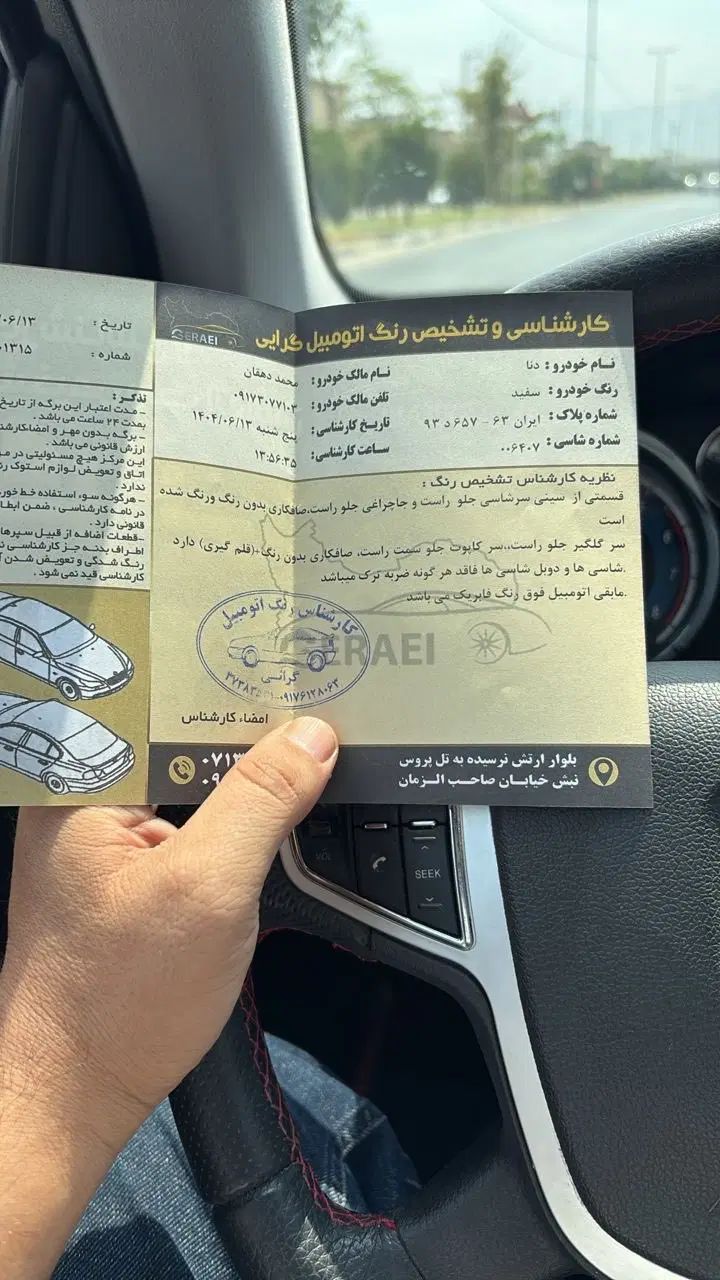 کارشناسی و تشخیص رنگ اتومبیل گرایی
GERAEI
نام خودرو : دنا
رنگ خودرو : سفید
شماره پلاک : ایران ۶۳ - ۶۵۷ د ۹۳
شماره شاسی : ۰۰۶۴۰۷
نام مالک خودرو : محمد دهقان
تلفن مالک خودرو : ۰۹۱۷۳۰۷۷۱۰۳
تاریخ کارشناسی : پنج شنبه ۱۴۰۴/۰۶/۱۳
ساعت کارشناسی : ۱۳:۵۶:۳۵
نظریه کارشناس تشخیص رنگ :
قسمتی از سینی سرشاسی جلو راست و جاچراغی جلو راست،صافکاری بدون رنگ ورنگ شده
است
سر گلگیر جلو راست،،سر کاپوت جلو سمت راست، صافکاری بدون رنگ-(قلم گیری) دارد
.شاسی ها و دوبل شاسی ها فاقد هر گونه ضربه ترک میباشد
.مابقی اتومبیل فوق رنگ فابریک می باشد
GERAEI
کارشناس رنگ اتومبیل
گرائی
۰۹۱۷۶۱۲۸۰۶۳
امضاء کارشناس
بلوار ارتش نرسیده به تل پروس
نبش خیابان صاحب الزمان
۰۷۱۳
۰۹
تاریخ : /۰۶/۱۳
شماره : ۰۱۳۱۵
تذکر :
- مدت اعتبار این برگه از تاریخ
بمدت ۲۴ ساعت می باشد .
- برگه بدون مهر و امضاکارشنا
ارزش قانونی می باشد .
این مرکز هیچ مسئولیتی در مو
اتاق و تعویض لوازم استوک ر
ندارد .
- هرگونه سوء استفاده خط خور
در نامه کارشناسی ، ضمن ابطا
قانونی دارد .
-قطعات اضافه از قبیل سپرها
اطراف بدنه جز کارشناسی نم
رنگ شدگی و تعویض شدن آ
کارشناسی قید نمی شود .
VOL
SEEK